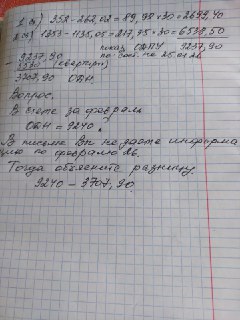 1 352 - 262,02 = 89,98 × 30 = 2699,40
1353 - 1135,05 = 217,95 × 30 = 6538,50
показ. ОДПУ 9237,90
- 9237,90
5530 (квартиры)
3707,90 ОДН
Вопрос.
В счете за февраль
ОДН = 9240.
В письме Вы не даете информа
цию по февралю 26.
Тогда объясните разницу
9240 - 3707,90